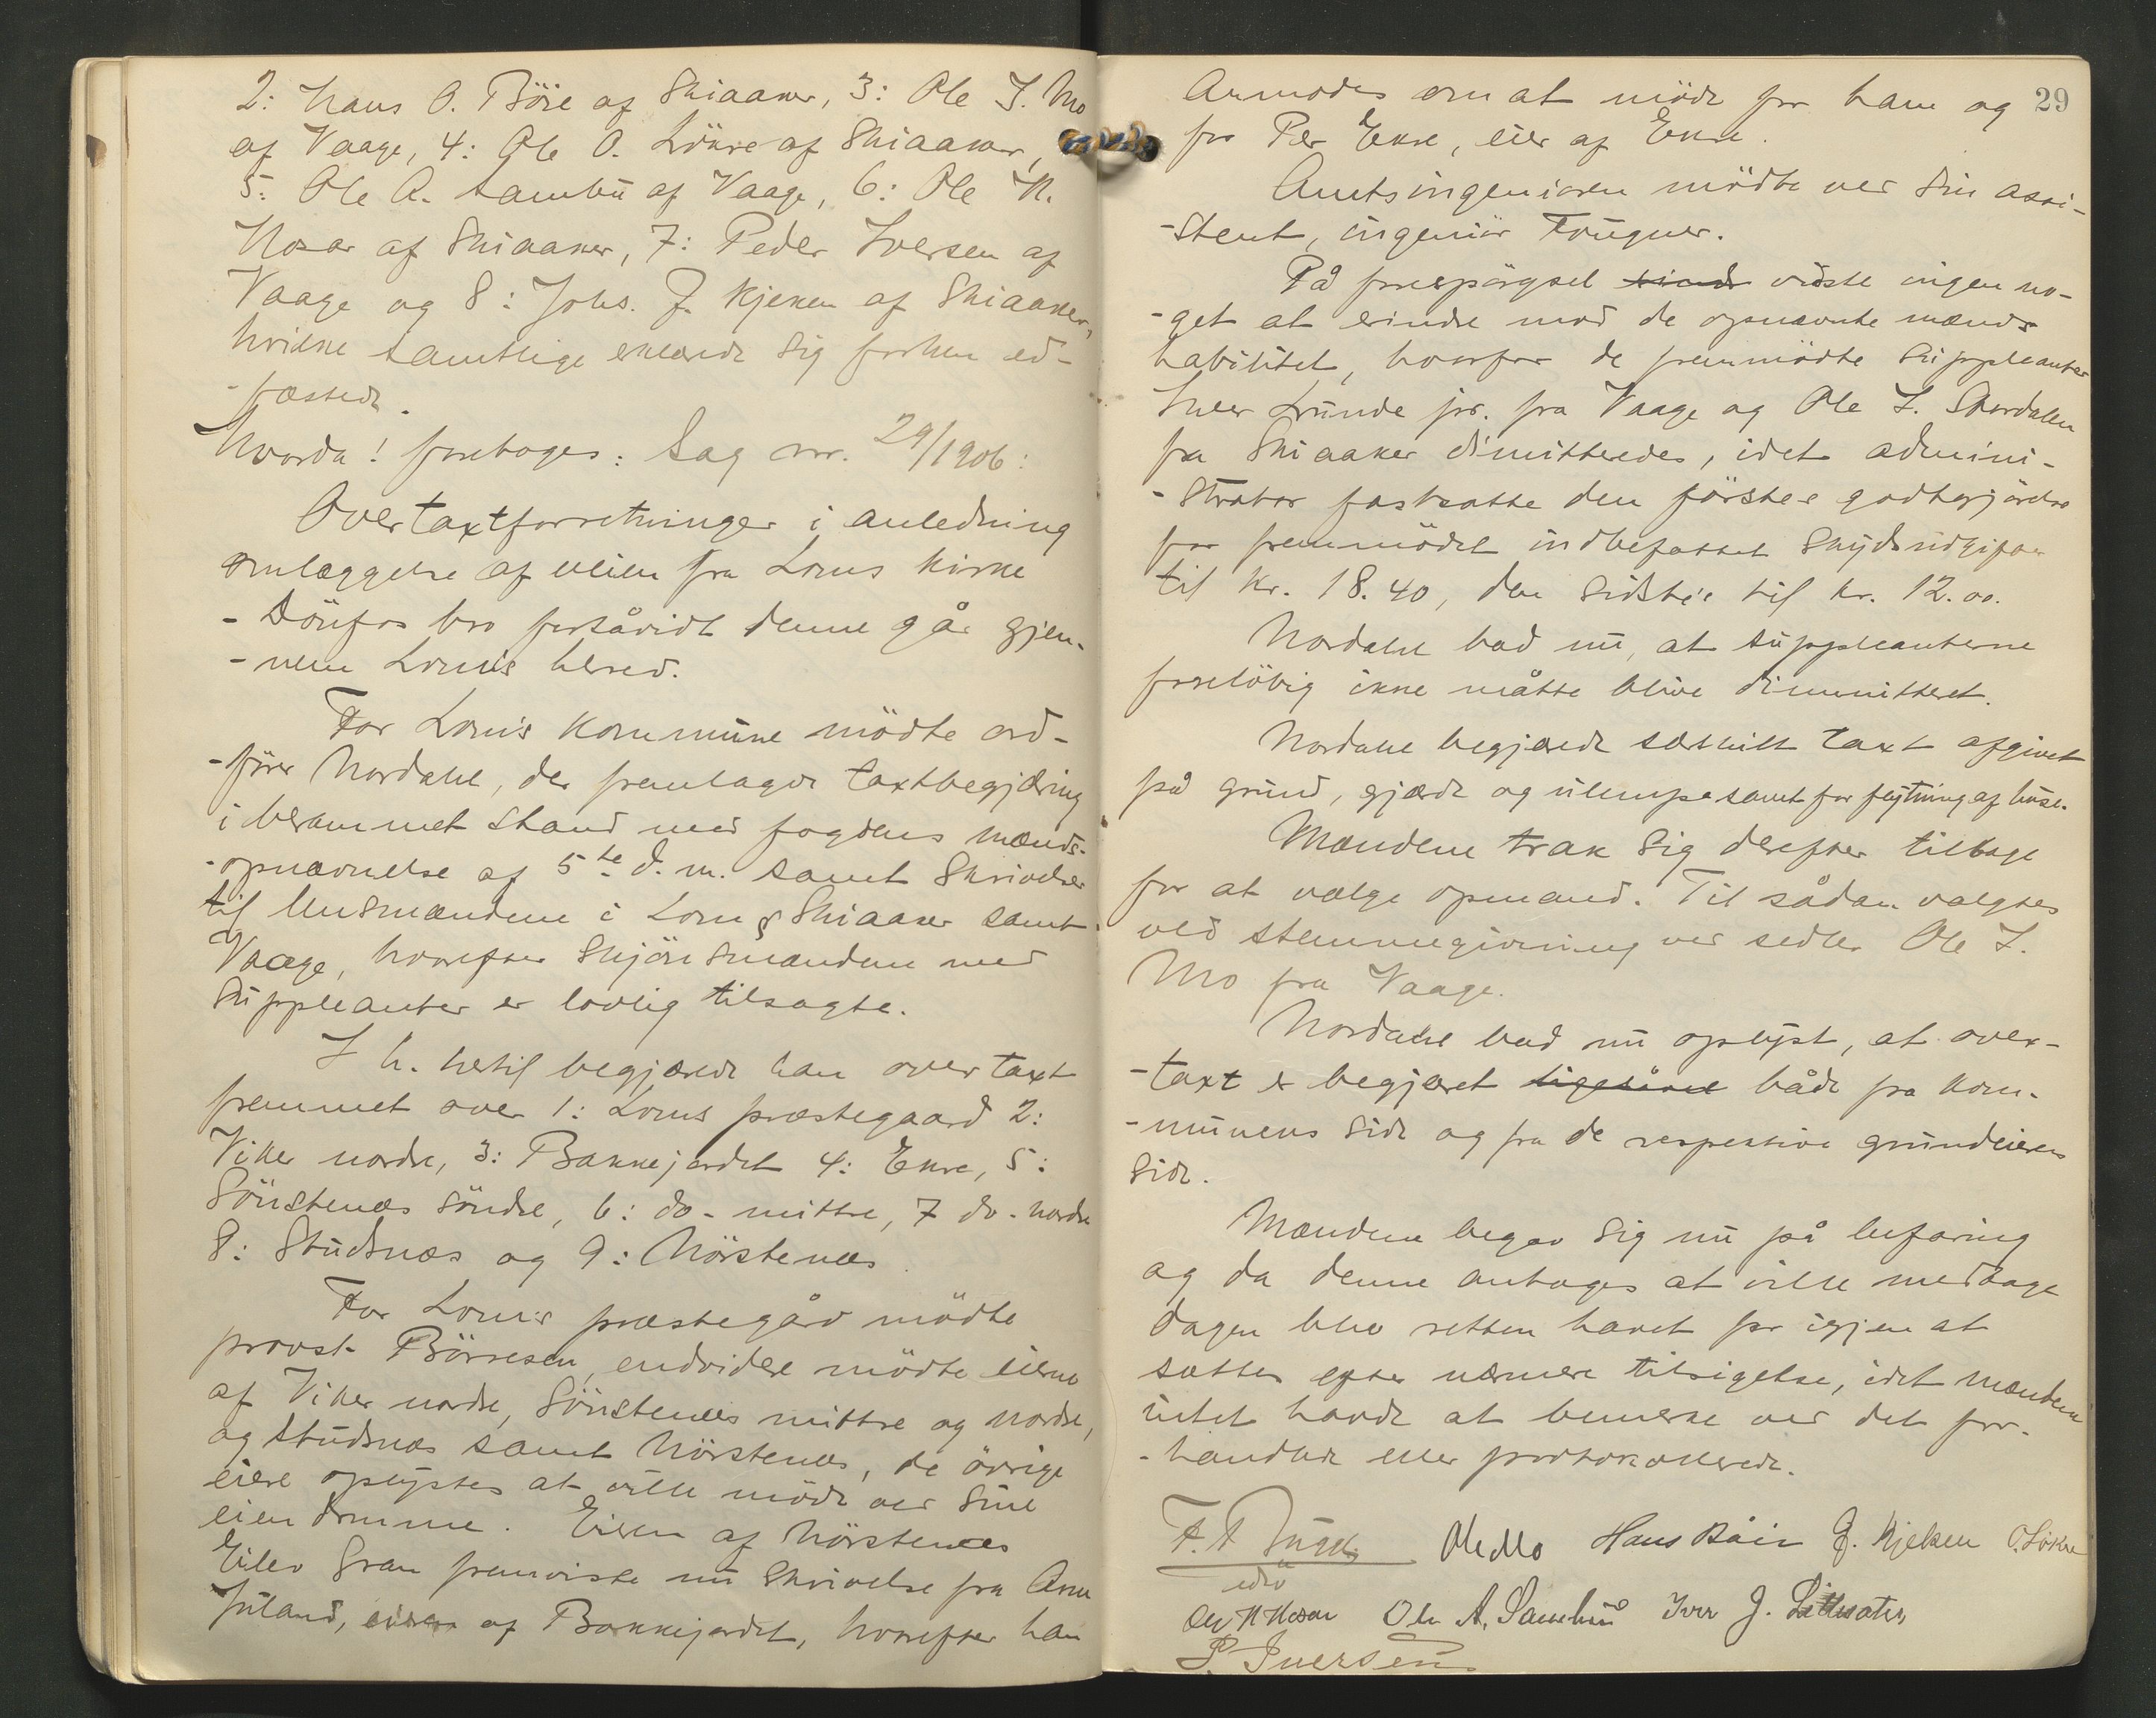 2: Hans O. Böie af Skiaaker, 3: Ole I. Mo
af Vaage, 4: Ole O. Lökre af Skiaaker,
5: Ole A. Sambu af Vaage, 6: Ole K.
Hosar af Skiaaker, 7: Peder Iversen af
Vaage og 8: Johs. J. Kjeken af Skiaaker,
hvilke samtlige erklærede sig forhen ed-
-fæstede.
Hvorda! foretoges: Sag nr. 29/1906:
Overtaxtforretninger i anledning
omlæggelse af veien fra Loms kirke
- Dönfos bro forsåvidt denne går gjen-
-nem Loms herred.
For Loms kommune mödte ord-
-förer Nordahl, der fremlagde taxtbegjæring
i berammet stand med fogdens mænds-
-opnævnelse af 5te d. m. samt skrivelser
til lensmændene i Lom & Skiaaker samt
Vaage, hvorefter skjönsmændene med
suppleanter er lovlig tilsagte.
I h. hertil begjærede han overtaxt
fremmet over 1: Loms præstegaard 2:
Viker nordre, 3: Bakkejordet 4: Ekre, 5:
Sönstenæs söndre, 6: do - mittre, 7 do - nordre
8: Studsnæs og 9: Nörstenæs.
For Loms præstegård mödte
provst Börresen, endvidere mödte eierne
af Viker nordre, Sönstenæs mittre og nordre,
og Studsnæs samt Nörstenæs, de övrige
eiere oplystes at ville möde ved sine
eiendomme. Eieren af Nörstenæs
Eilev Gran fremviste nu skrivelse fra Anne
Juland, eier af Bakkejordet, hvorefter han
29
anmodes om at möde for ham og
for Per Ekre, eier af Ekre.
Amtsingeniören mödte ved sin assi-
-stent, ingeniör Fougner.
På forespörgsel vidste ingen no-
-get at erindre mod de opnævnte mænds
habilitet, hvorfor de fremmödte suppleanter
Iver Lunde jr. fra Vaage og Ole I. Skordalen
fra Skiaaker dimitteredes, idet admini-
-strator fastsatte den förstes godtgjörelse
for fremmödet indbefattet skydsudgifter
til kr. 18.40, den sidstes til kr. 12.00.
Nordahl bad nu, at suppleanterne
foreløbig ikke måtte blive dimmitteret.
Nordahl begjærede særskilt taxt afgivet
på grund, gjærde og ulempe samt for flytning af huse.
Mændene trak sig derefter tilbage
for at vælge opmand. Til sådan valgtes
ved stemmegivning ved sedler Ole I.
Mo fra Vaage.
Nordahl bad nu oplyst, at over-
-taxt er begjæret ligesåvel både fra kom-
-munens side og fra de respektive grundeieres
side.
Mændene begav sig nu på befaring
og da denne antoges at ville medtage
dagen blev retten hævet for igjen at
sættes efter nærmere tilsigelse, idet mændene
intet havde at bemerke ved det for-
-handlede eller protokollerede.
Ole Mo Hans Böie J. Kjeken O. Lökre
Ole K Hosar Ole A. Sambu Iver J.
P. Iversen